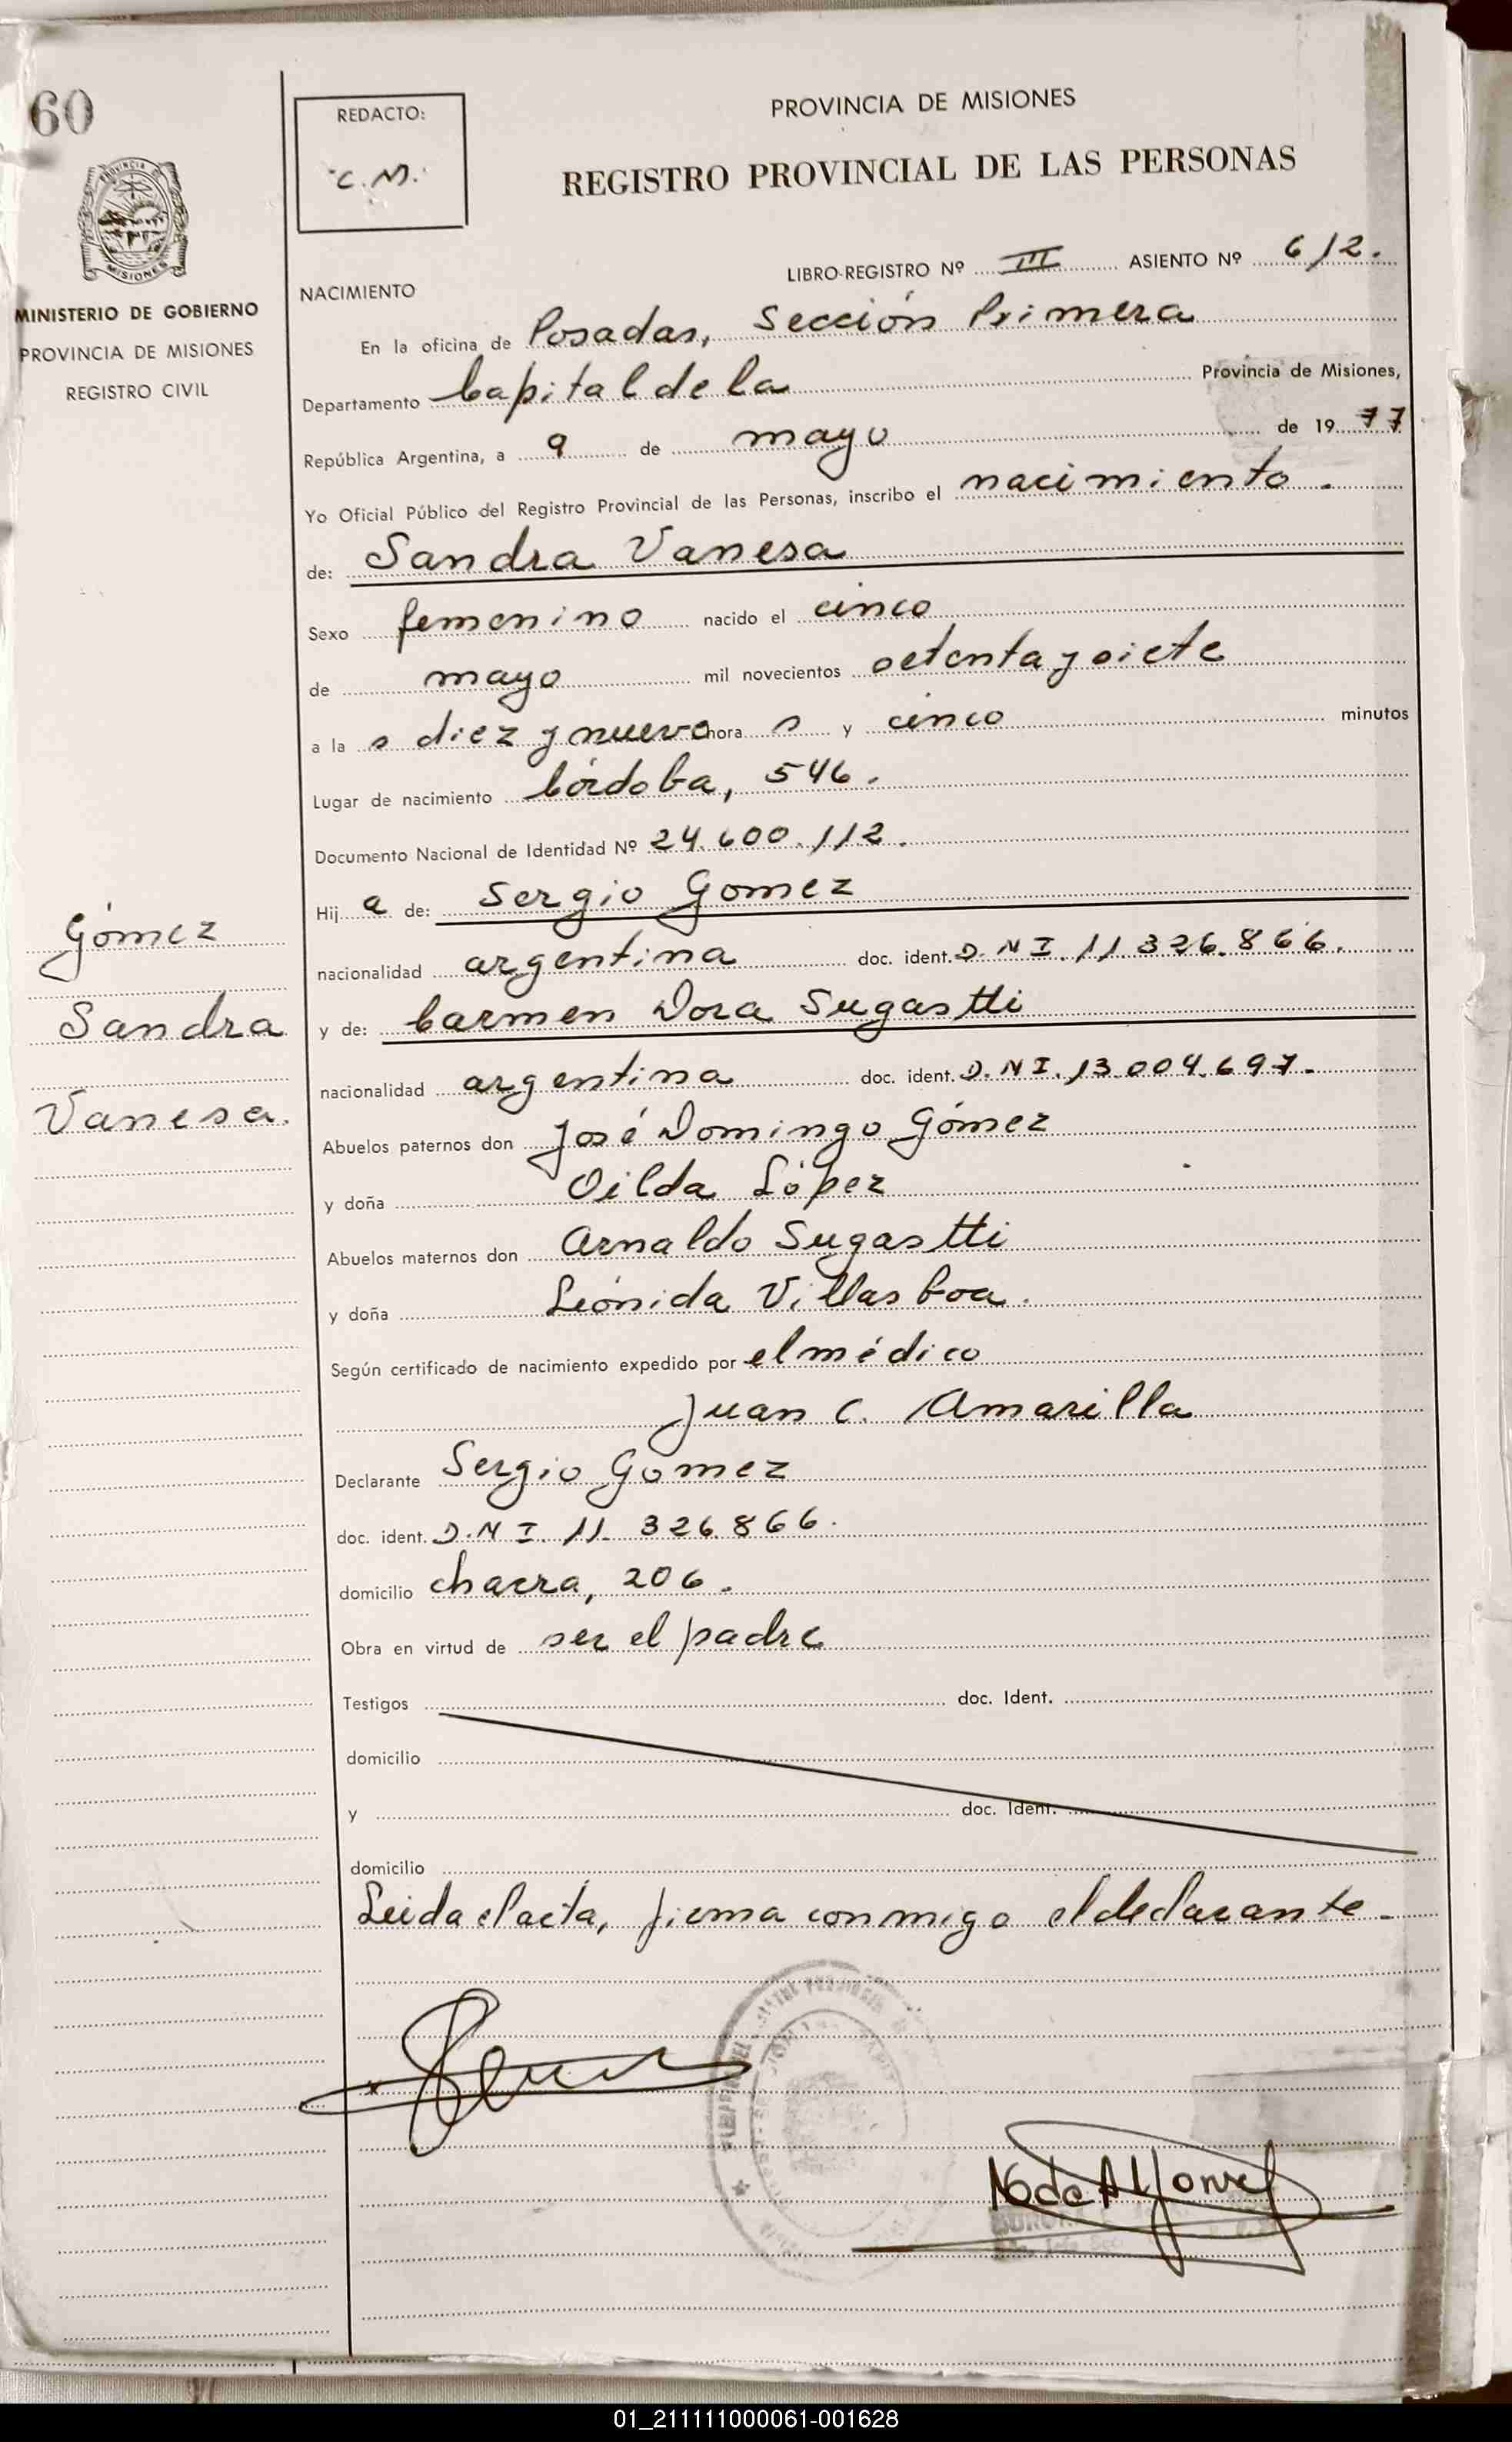 60
REDACTO:
"C. M."
PROVINCIA DE MISIONES
REGISTRO PROVINCIAL DE LAS PERSONAS
MISIONES
MINISTERIO DE GOBIERNO
PROVINCIA DE MISIONES
REGISTRO CIVIL
LIBRO-REGISTRO Nº III ASIENTO Nº 612.
NACIMIENTO
En la oficina de Posadas, Sección Primera
Departamento Capital de la Provincia de Misiones,
República Argentina, a 9 de mayo de 1977
Yo Oficial Público del Registro Provincial de las Personas, inscribo el nacimiento.
de: Sandra Vanesa
Sexo femenino nacido el cinco
de mayo mil novecientos setenta y siete
a la s diez y nueve hora s y cinco minutos
Lugar de nacimiento Córdoba, 546.
Documento Nacional de Identidad Nº 24.600.112.
Hij a de: Sergio Gomez
nacionalidad argentina doc. ident. D.N I. 11.326.866.
y de: Carmen Dora Sugastti
nacionalidad argentina doc. ident. D.N I. 13.004.697.
Abuelos paternos don José Domingo Gómez
y doña Oilda López
Abuelos maternos don Arnaldo Sugastti
y doña Leónida Villasboa.
Según certificado de nacimiento expedido por el médico
Juan C. Amarilla
Declarante Sergio Gomez
doc. ident. D.N I. 11. 326.866.
domicilio chacra, 206.
Obra en virtud de ser el padre
Testigos doc. Ident.
domicilio
y doc. Ident.
domicilio
Leida el acta, firma conmigo el declarante.
Gómez
Sandra
Vanesa.
01_211111000061-001628